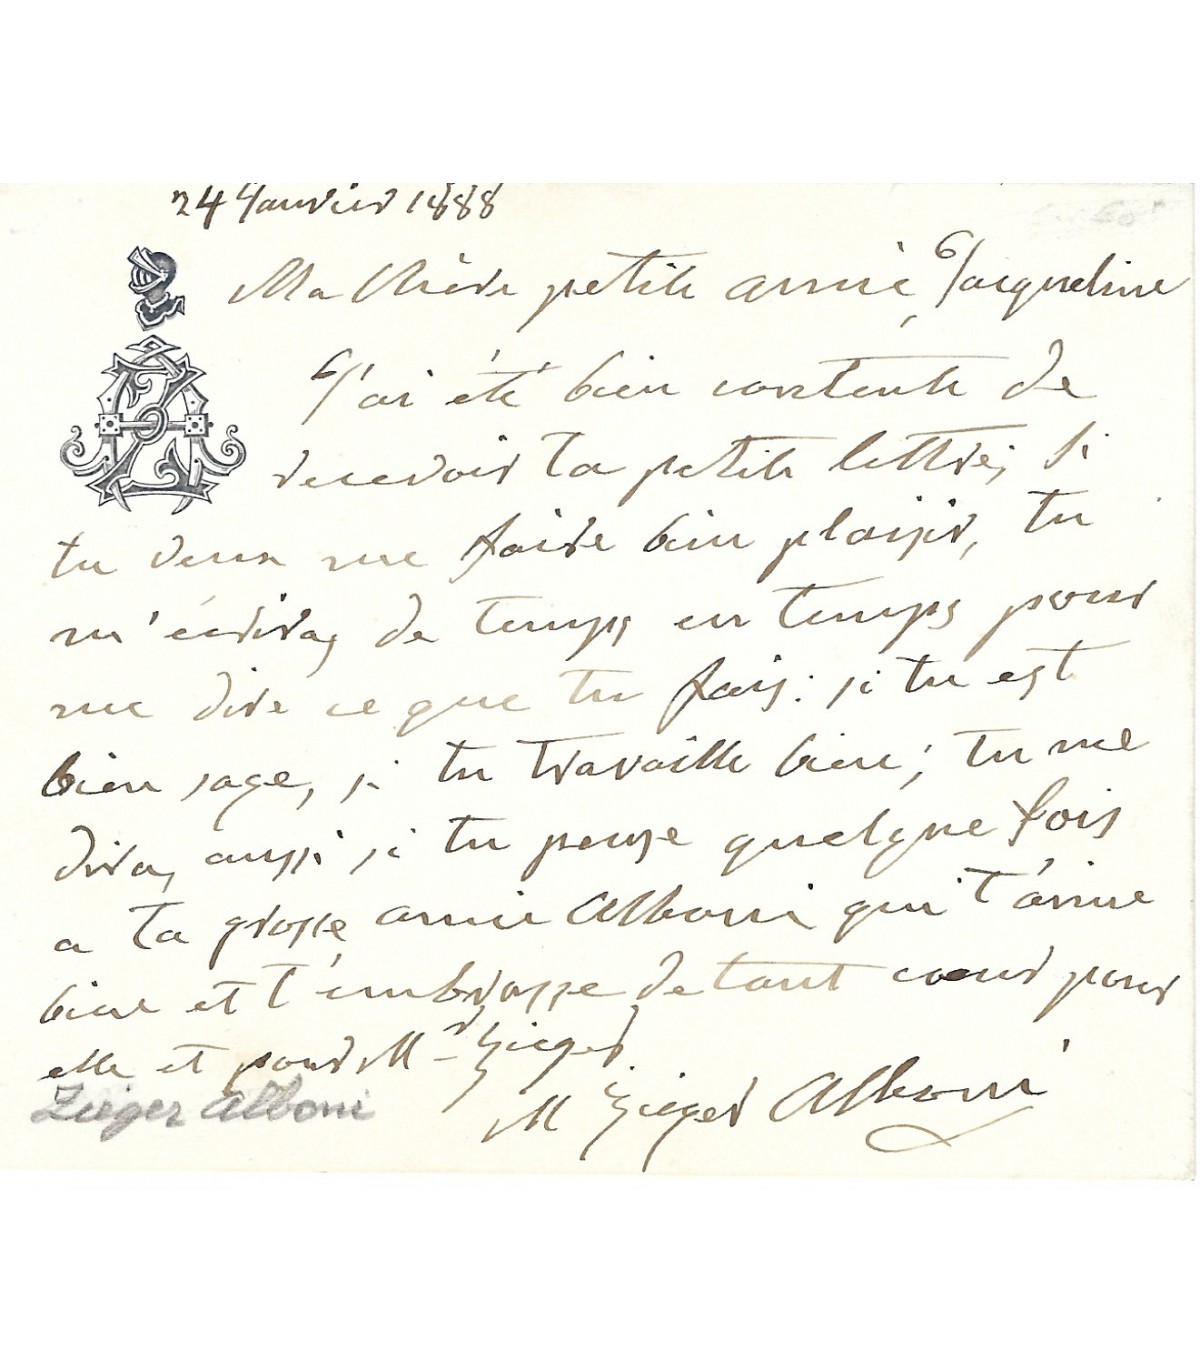 24 Janvier 1888
Ma chère petite amie Jacqueline
J'ai été bien contente de
recevoir ta petite lettre; si
tu veux me faire bien plaisir, tu
m'écriras de temps en temps pour
me dire ce que tu fais: si tu est
bien sage, si tu travaille bien; tu me
diras aussi si tu pense quelque fois
a ta grosse amie Alboni qui t'aime
bien et t'embrasse de tout coeur pour
elle et pour Mr Zieger
M Zieger Alboni
Zieger Alboni